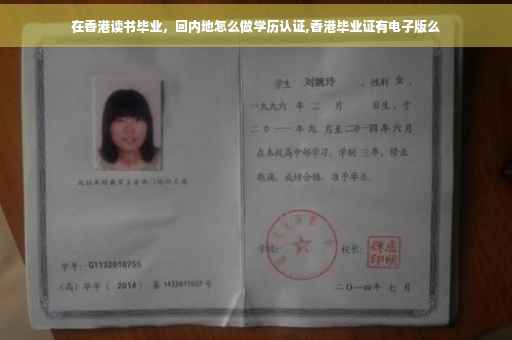 在香港读书毕业，回内地怎么做学历认证,香港毕业证有电子版么
学生 刘婉玲 ，性别 女 ，
一九九六 年 二 月 日生，于
二〇一一 年 九 月至 二〇一四 年 六 月
在本校高中部学习，学制 三年，修业
期满，成绩合格，准予毕业。
学校： 校长：
学号：G1132010755
(高) 毕字 ( 2014 ) 第 1432011027 号
二〇一四年 七 月